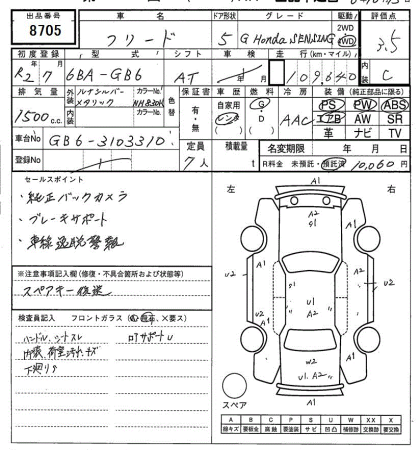 出品番号 車名 ドア形状 グレード 駆動 評価点
8705 フリード 5 G Honda SENSING 2WD 4WD 3.5
初度登録 型式 シフト 車検 走行(km・マイル) 内装
R2年7 6BA-GB6 AT 109,640 C
排気量 外装 ルナシルバーメタリック カラーNo. NH830M 色替 車歴 燃料 冷房 装備(純正部品に限る)
1500 c.c. 内装 カラーNo. 有・無 自家用 レンタ G・D AAC PS PW ABS
エアB AW SR
革 ナビ TV
車台No. GB6-3103310 定員 7人 積載量 t 名変期限 年 月 日
登録No. R料金 未預託・預託済 10,060円
セールスポイント
・純正バックカメラ
・ブレーキサポート
・車線逸脱警報
※注意事項記入欄(修復・不具合箇所および状態等)
スペアキー後送
検査員記入 フロントガラス(A,飛石、×要ス)
ハンドル、シートスレ ロアサポートU
内装、荷室汚れ、キズ
下廻りサ
左 右
A1
A2
A1 A1
U2 U2
A1
U1
A2
U2
W2
U1, A2
A1
A2
A1
スペア
A B C P S U W X XX
線キズ 要鈑金 腐蝕 要塗装 サビ 凹凸 補修跡 要交換 交換跡